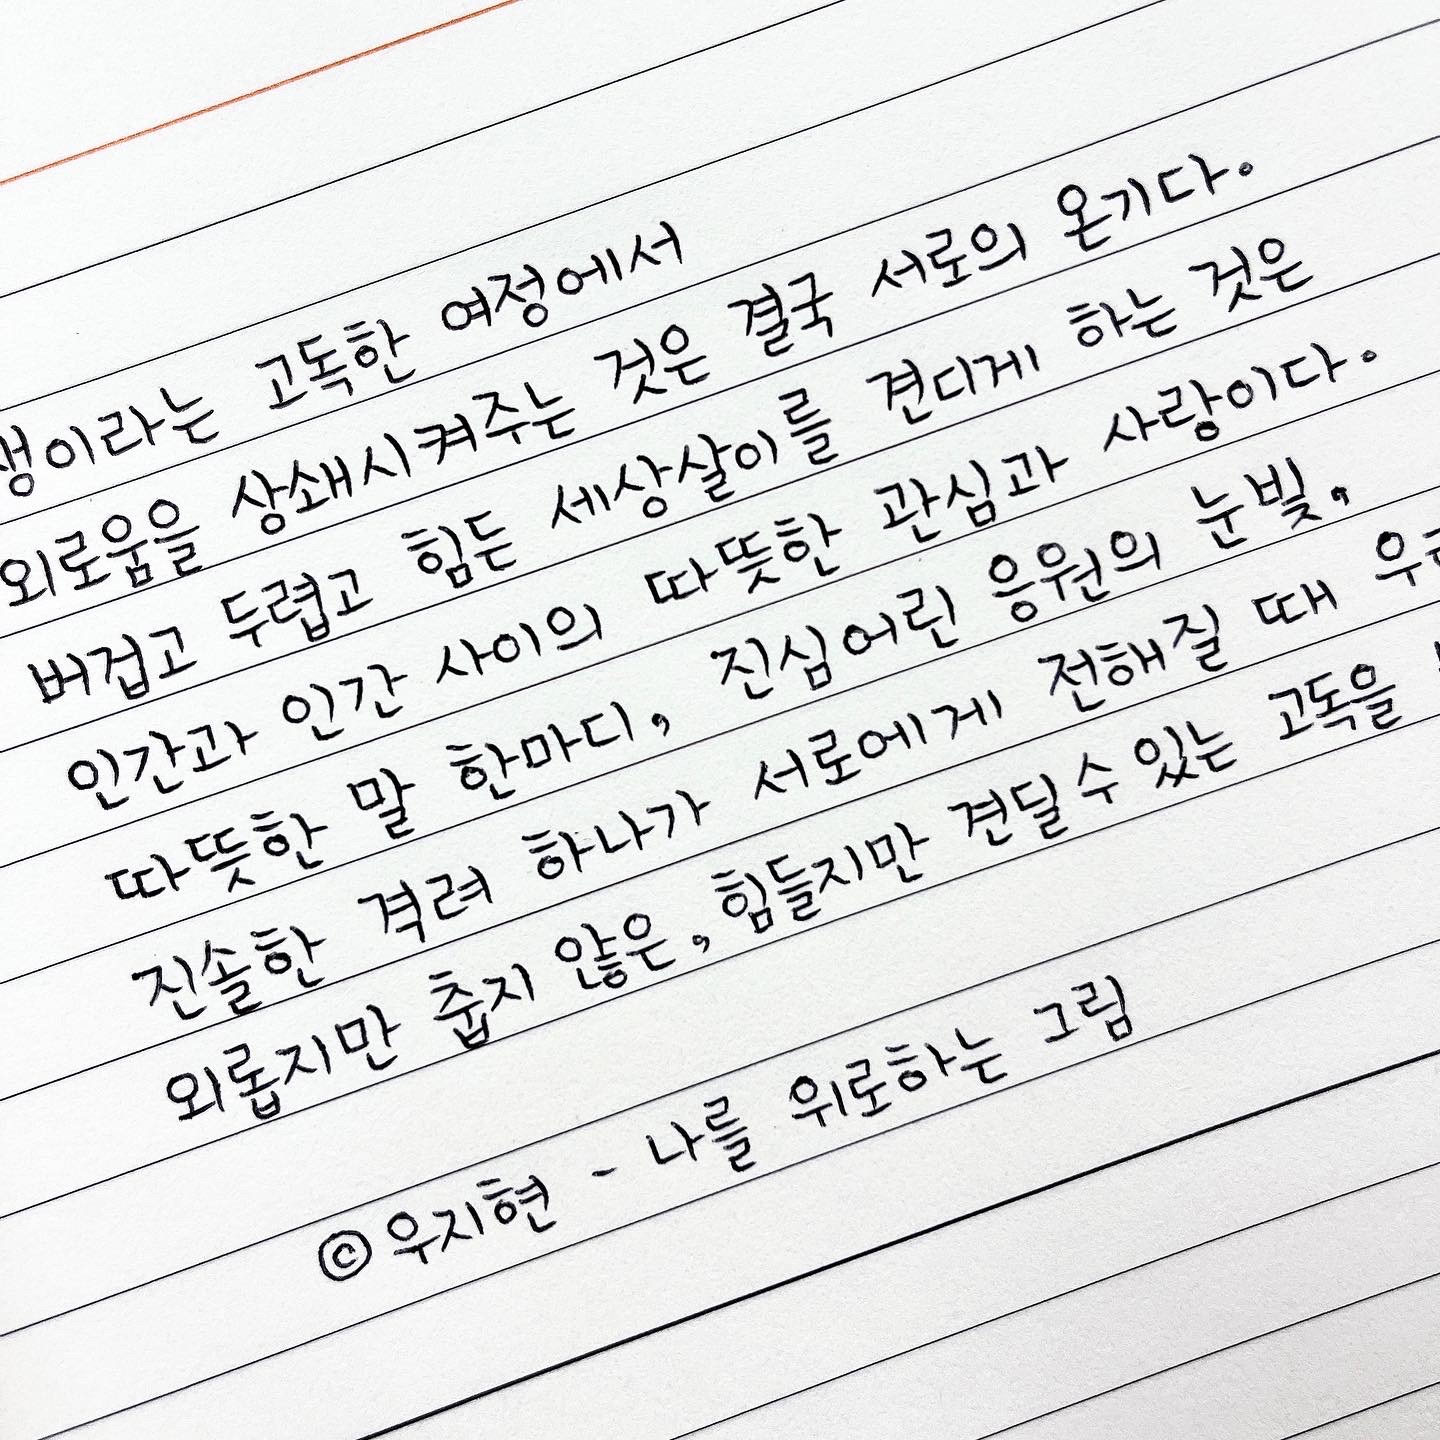 생이라는 고독한 여정에서
외로움을 상쇄시켜주는 것은 결국 서로의 온기다.
버겁고 두렵고 힘든 세상살이를 견디게 하는 것은
인간과 인간 사이의 따뜻한 관심과 사랑이다.
따뜻한 말 한마디, 진심어린 응원의 눈빛,
진솔한 격려 하나가 서로에게 전해질 때
외롭지만 춥지 않은, 힘들지만 견딜 수 있는 고독을
ⓒ우지현 - 나를 위로하는 그림